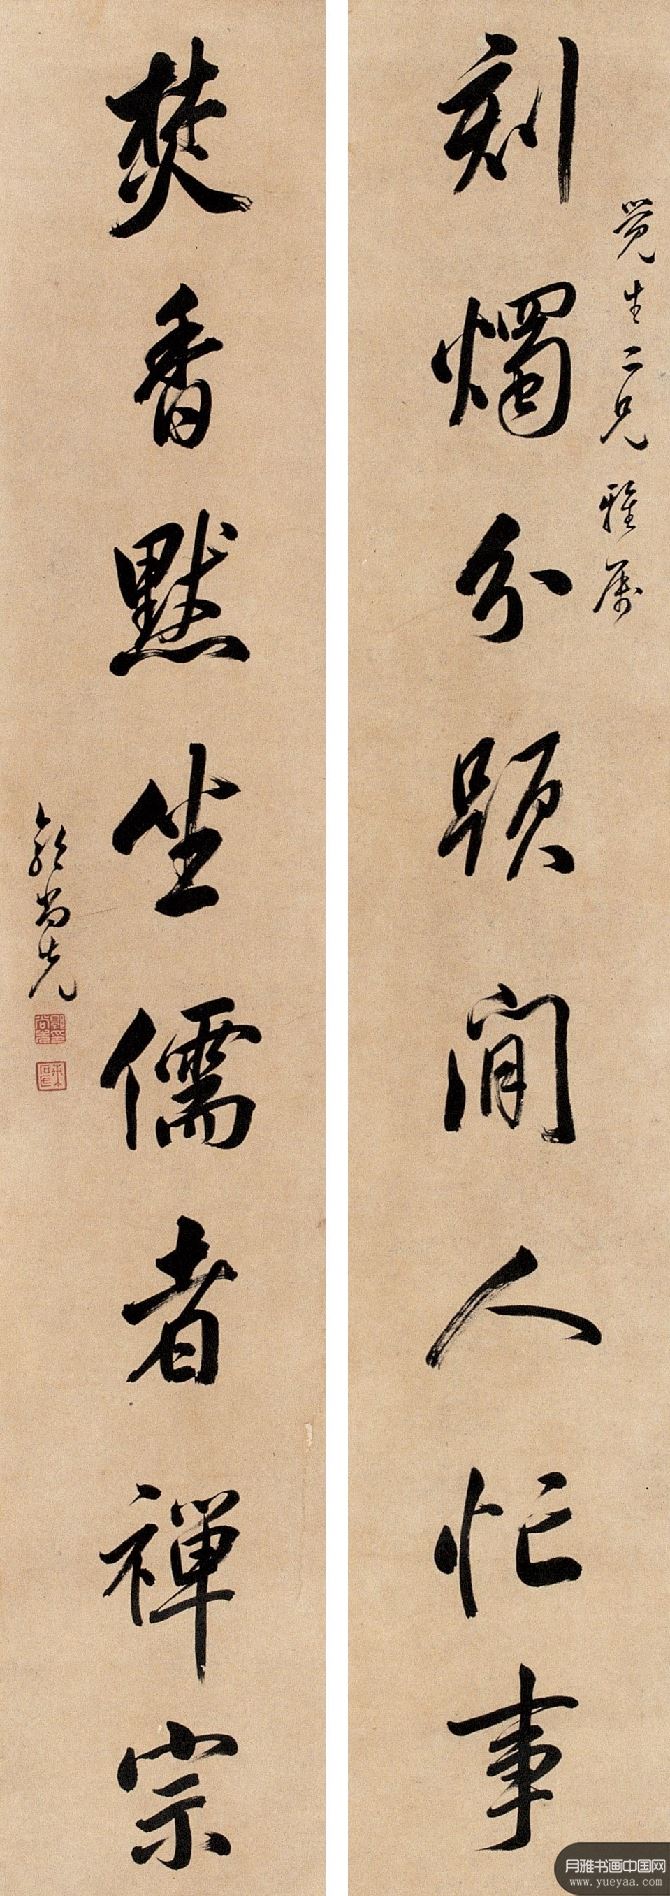 覺生二兄雅属
刻燭分題閒人忙事
焚香默坐儒者禪宗
郭尚先
月雅书画中国网
www.yueyaa.com